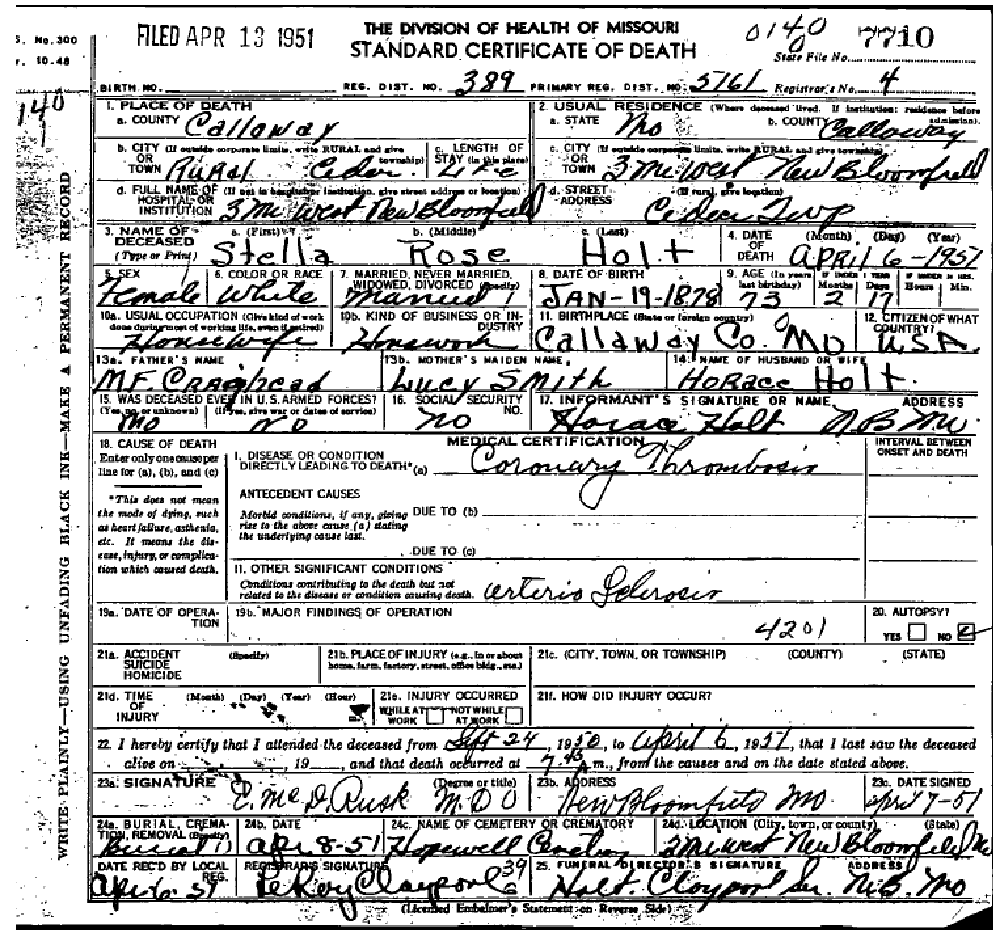 S. No. 300
10-48
FILED APR 13 1951
THE DIVISION OF HEALTH OF MISSOURI
STANDARD CERTIFICATE OF DEATH
0140
0
7710
State File No.
BIRTH NO. REG. DIST. NO. 389 PRIMARY REG. DIST. NO. 5761 Registrar's No. 4
140
1
WRITE PLAINLY—USING UNFADING BLACK INK—MAKE A PERMANENT RECORD
1. PLACE OF DEATH
a. COUNTY Callaway
2. USUAL RESIDENCE (Where deceased lived. If institution: residence before admission).
a. STATE Mo b. COUNTY Callaway
b. CITY (If outside corporate limits, write RURAL and give township) OR TOWN Rural Cedar
c. LENGTH OF STAY (in this place) Life
c. CITY (If outside corporate limits, write RURAL and give township) OR TOWN 3 Mi West New Bloomfield
d. FULL NAME OF (If not in hospital or institution, give street address or location) HOSPITAL OR INSTITUTION 3 Mi West New Bloomfield
d. STREET ADDRESS (If rural, give location) Cedar Twp
3. NAME OF DECEASED (Type or Print) a. (First) Stella b. (Middle) Rose c. (Last) Holt
4. DATE OF DEATH (Month) (Day) (Year) April 6-1951
5. SEX Female
6. COLOR OR RACE White
7. MARRIED, NEVER MARRIED, WIDOWED, DIVORCED (Specify) Married 1
8. DATE OF BIRTH JAN-19-1878
9. AGE (In years last birthday) 73 IF UNDER 1 YEAR Months 2 Days 17 IF UNDER 24 HRS. Hours Min.
10a. USUAL OCCUPATION (Give kind of work done during most of working life, even if retired) Housewife
10b. KIND OF BUSINESS OR INDUSTRY Housework
11. BIRTHPLACE (State or foreign country) Callaway Co. Mo
12. CITIZEN OF WHAT COUNTRY? USA
13a. FATHER'S NAME M.F. Craghead
13b. MOTHER'S MAIDEN NAME Lucy Smith
14. NAME OF HUSBAND OR WIFE Horace Holt
15. WAS DECEASED EVER IN U.S. ARMED FORCES? (Yes, no, or unknown) (If yes, give war or dates of service) no No
16. SOCIAL SECURITY NO. No
17. INFORMANT'S SIGNATURE OR NAME ADDRESS Horace Holt N.B. Mo
18. CAUSE OF DEATH
Enter only one cause per line for (a), (b), and (c)
*This does not mean the mode of dying, such as heart failure, asthenia, etc. It means the disease, injury, or complication which caused death.
MEDICAL CERTIFICATION
INTERVAL BETWEEN ONSET AND DEATH
I. DISEASE OR CONDITION DIRECTLY LEADING TO DEATH*(a) Coronary Thrombosis
ANTECEDENT CAUSES
Morbid conditions, if any, giving rise to the above cause (a) stating the underlying cause last.
DUE TO (b)
DUE TO (c)
II. OTHER SIGNIFICANT CONDITIONS
Conditions contributing to the death but not related to the disease or condition causing death. arterio Sclerosis
19a. DATE OF OPERATION
19b. MAJOR FINDINGS OF OPERATION
4201
20. AUTOPSY? YES NO
21a. ACCIDENT SUICIDE HOMICIDE (Specify)
21b. PLACE OF INJURY (e.g., in or about home, farm, factory, street, office bldg., etc.)
21c. (CITY, TOWN, OR TOWNSHIP) (COUNTY) (STATE)
21d. TIME OF INJURY (Month) (Day) (Year) (Hour)
21e. INJURY OCCURRED WHILE AT WORK NOT WHILE AT WORK
21f. HOW DID INJURY OCCUR?
22. I hereby certify that I attended the deceased from Sept 24, 1950, to April 6, 1951, that I last saw the deceased
alive on , 19 , and that death occurred at m., from the causes and on the date stated above.
23a. SIGNATURE (Degree or title) E. McD. Rusk M.D.O
23b. ADDRESS New Bloomfield Mo.
23c. DATE SIGNED April 7-51
24a. BURIAL, CREMATION, REMOVAL (Specify) Burial
24b. DATE Apr 8-51
24c. NAME OF CEMETERY OR CREMATORY Hopewell
24d. LOCATION (City, town, or county) (State) 2 mi west New Bloomfield Mo
DATE REC'D BY LOCAL REG. Apr 6-51
REGISTRAR'S SIGNATURE LeRoy Claypool
25. FUNERAL DIRECTOR'S SIGNATURE ADDRESS Holt Claypool N.B. Mo
(Licensed Embalmer's Statement on Reverse Side)